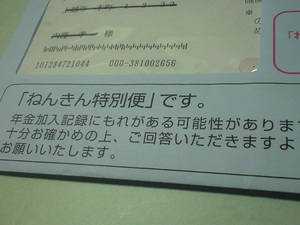 様
101284721044 000-381002656
「ねんきん特別便」です。
年金加入記録にもれがある可能性がありま
十分お確かめの上、ご回答いただきますよ
お願いいたします。